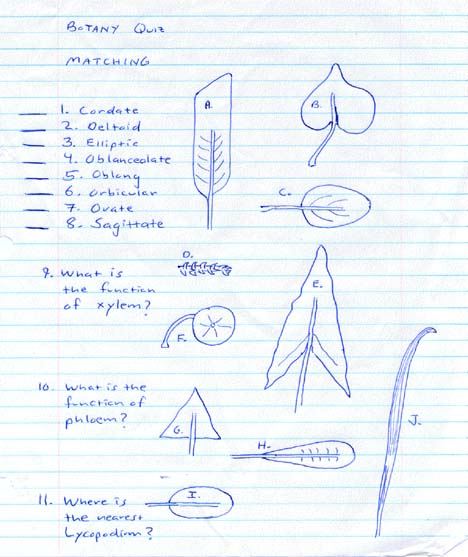 BOTANY QUIZ
MATCHING
1. Cordate
2. Deltoid
3. Elliptic
4. Oblanceolate
5. Oblong
6. Orbicular
7. Ovate
8. Sagittate
A.
B.
C.
D.
9. What is
the function
of xylem?
E.
F.
10. What is the
function of
phloem?
G.
H.
J.
I.
11. Where is
the nearest
Lycopodium?